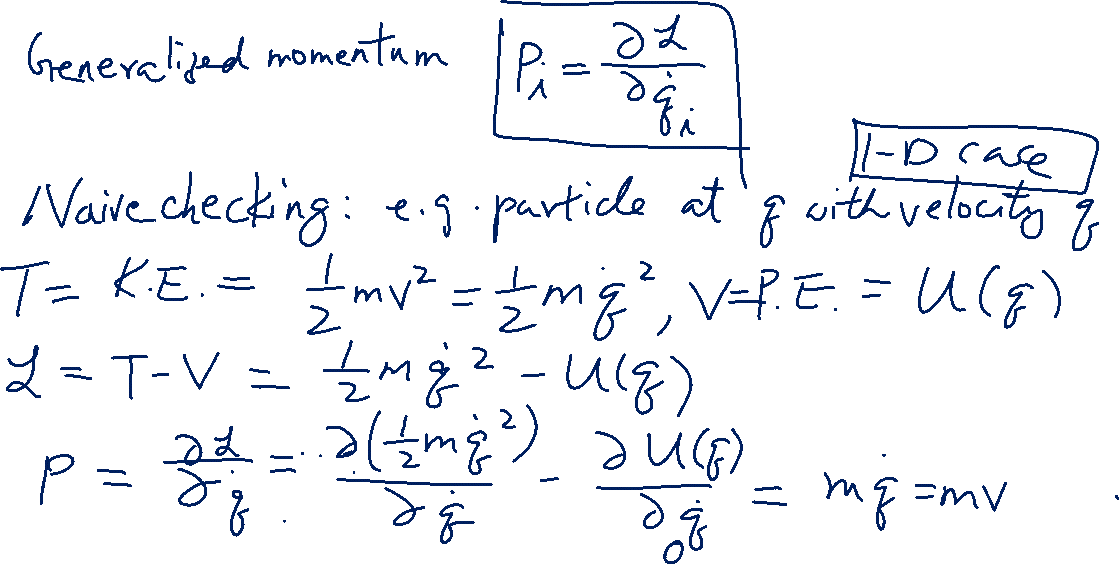 Generalized momentum Pᵢ = ∂ℒ/∂q̇ᵢ
1-D case
Naive checking: e.g. particle at q with velocity q̇
T = K.E. = 1/2 mv² = 1/2 m q̇², V=P.E. = U(q)
ℒ = T-V = 1/2 m q̇² - U(q)
P = ∂ℒ/∂q̇ = ∂(1/2 m q̇²)/∂q̇ - ∂U(q)/∂q̇ = m q̇ = mv
0